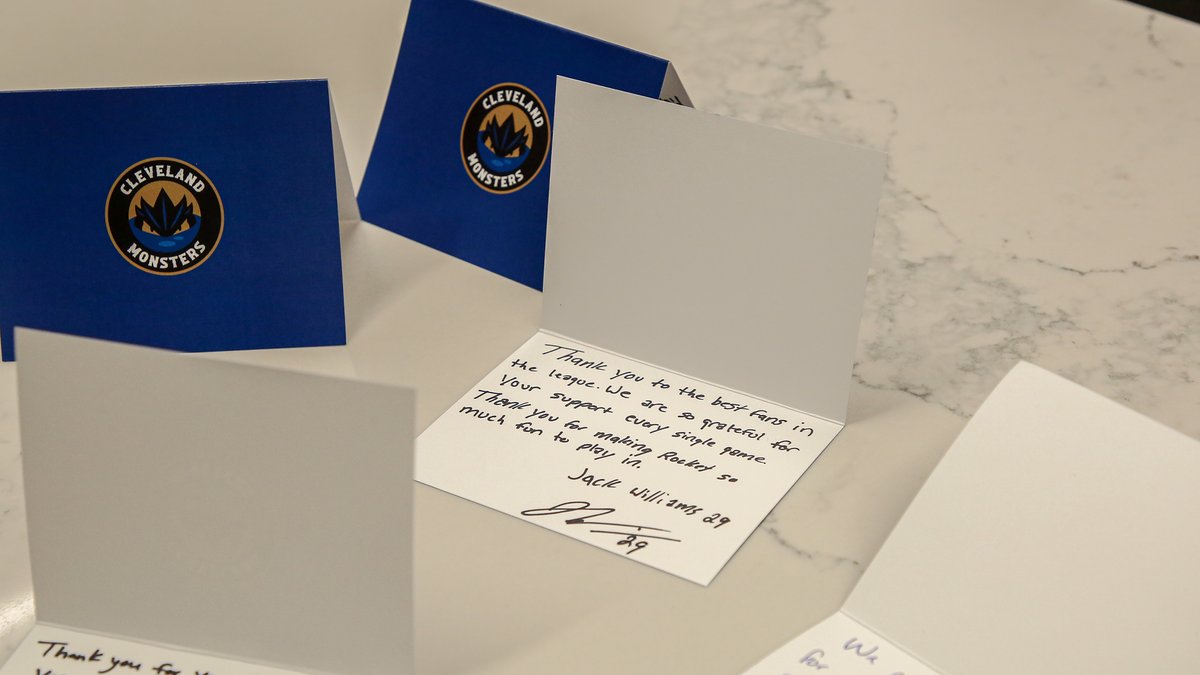 CLEVELAND
MONSTERS
CLEVELAND
MONSTERS
Thank you to the best fans in
the league. We are so grateful for
Your support every single game.
Thank you for making Rocket so
much fun to play in.
Jack Williams 29
29
Thank you for
We
for